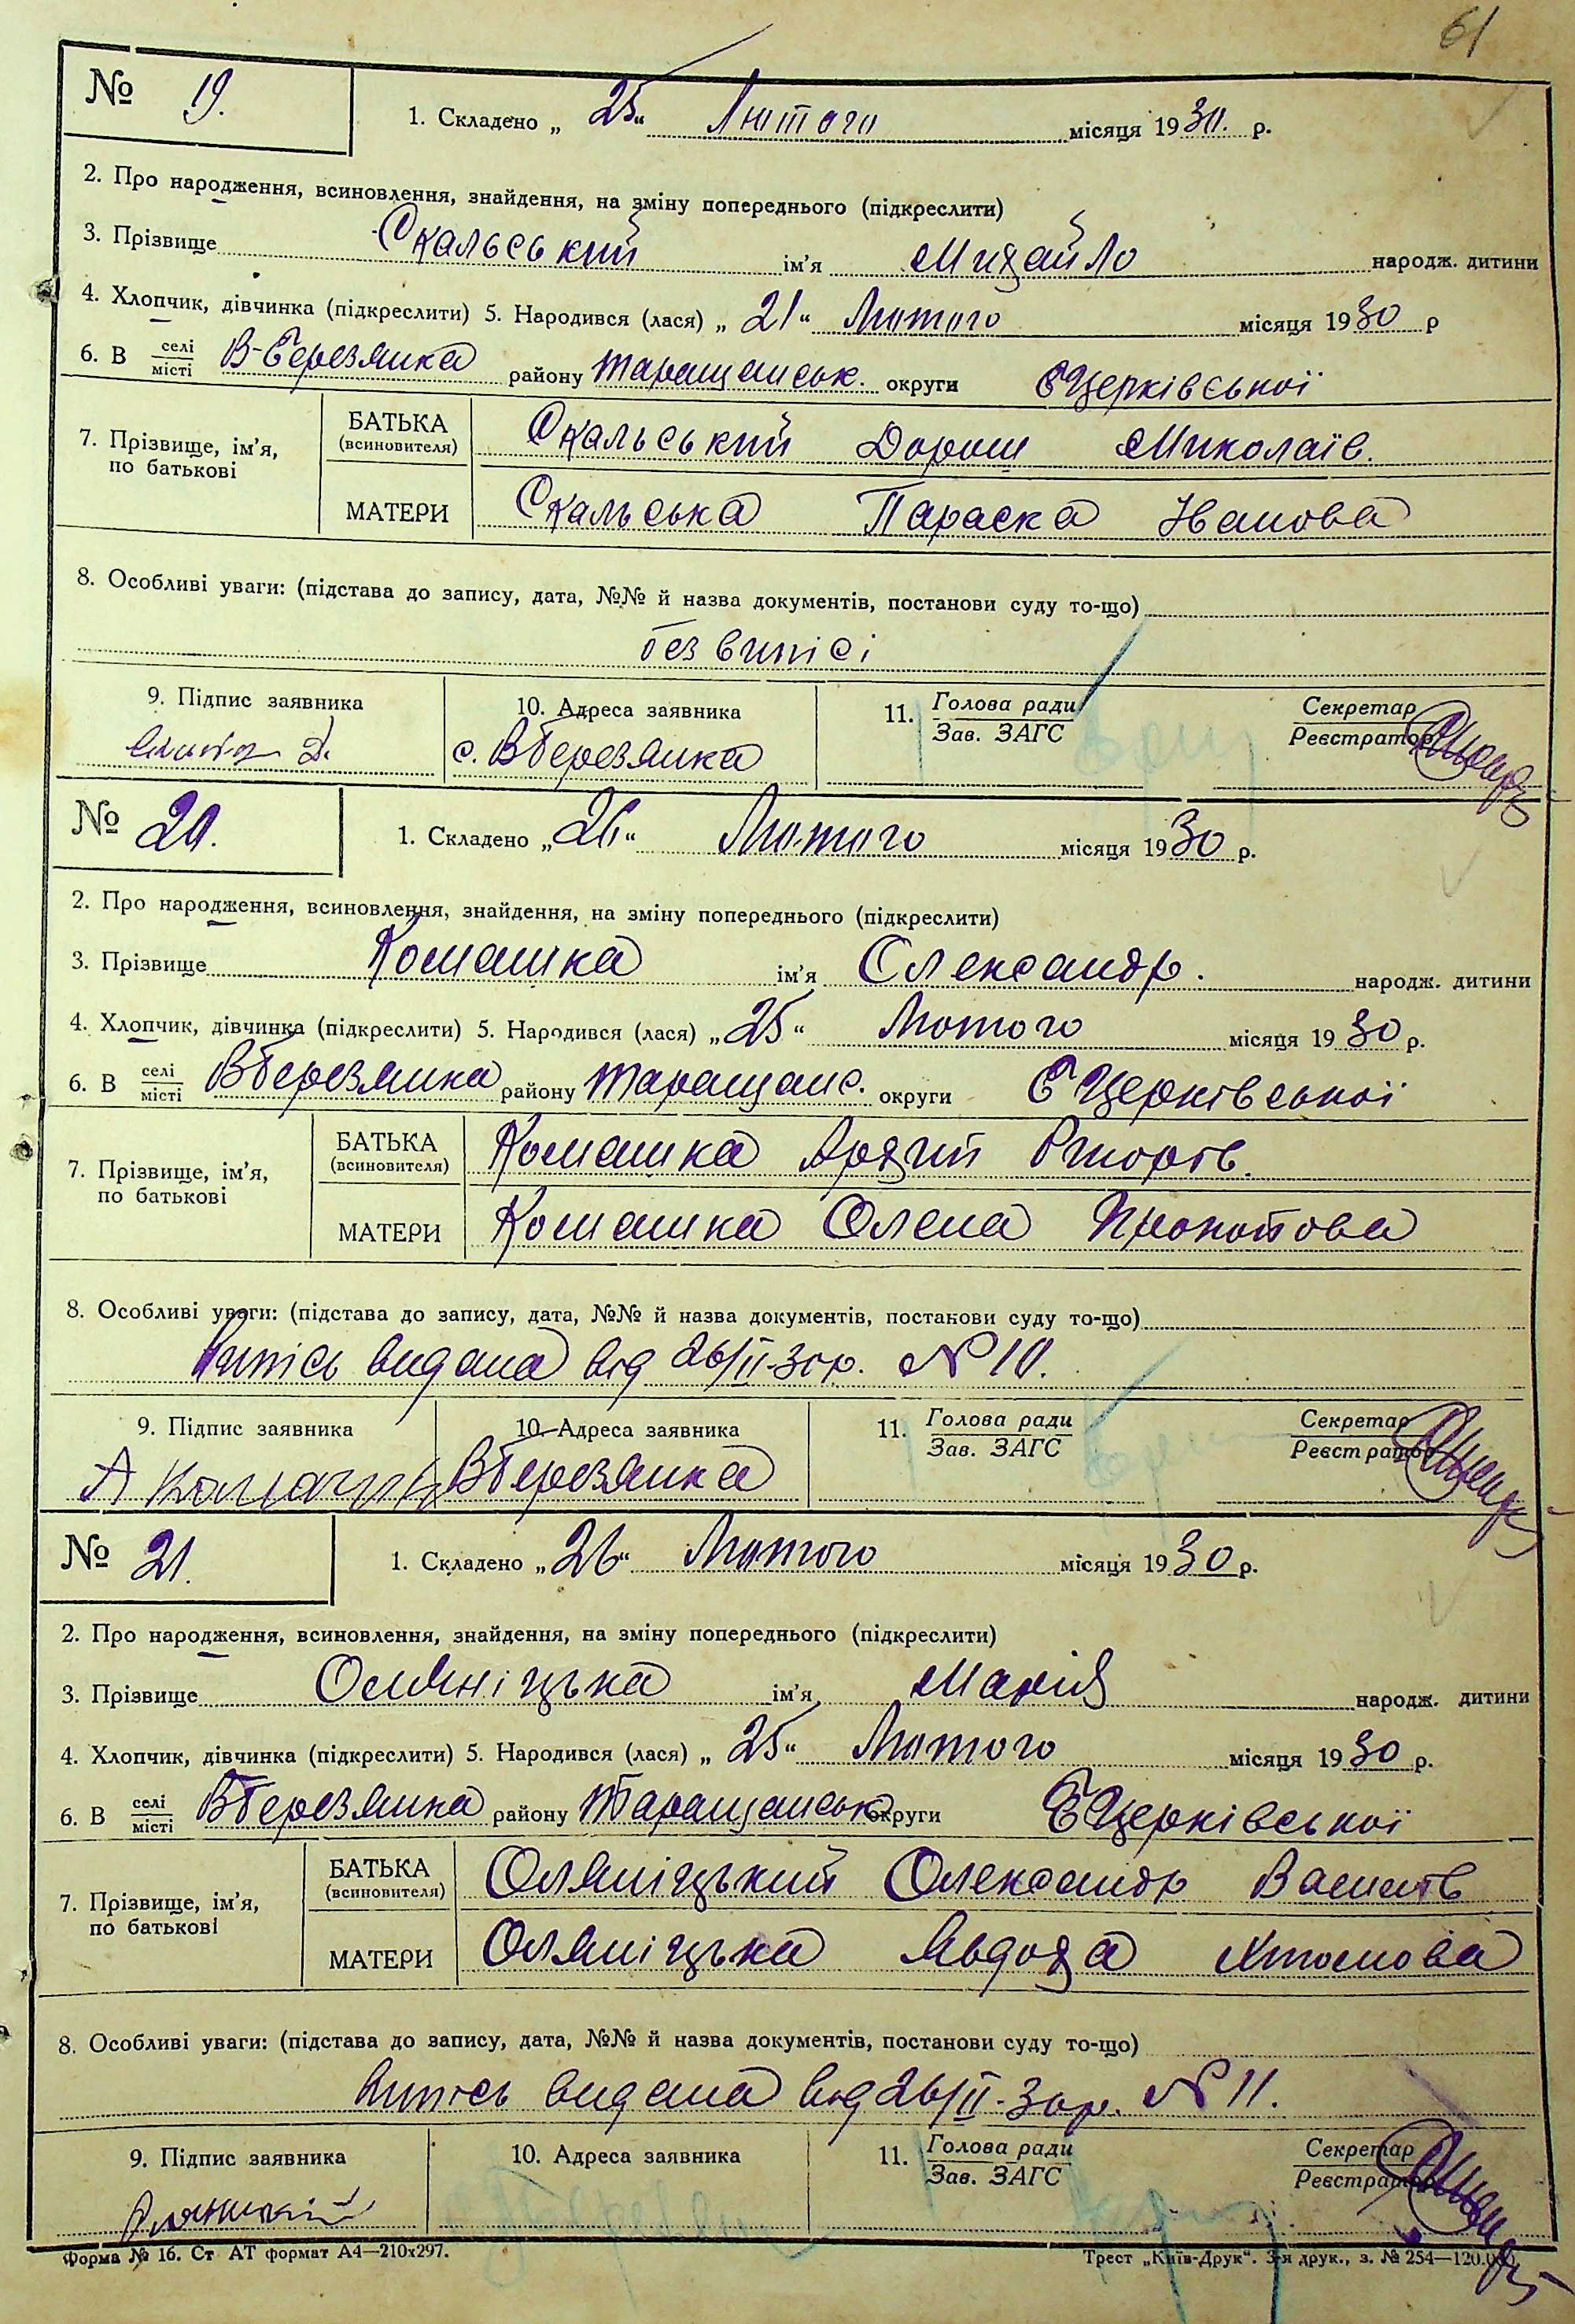 61
№ 19.
1. Складено „25“ Лютого місяця 1930. р.
2. Про народження, всиновлення, знайдення, на зміну попереднього (підкреслити)
3. Прізвище Скальський ім'я Михайло народж. дитини
4. Хлопчик, дівчинка (підкреслити) 5. Народився (лася) „21“ Лютого місяця 1930 р
6. В селі/місті В-Березянка району Таращанськ. округи БЦерківської
7. Прізвище, ім'я, по батькові
БАТЬКА (всиновителя) Скальський Дорош Миколаїв.
МАТЕРИ Скальська Параска Іванова
8. Особливі уваги: (підстава до запису, дата, №№ й назва документів, постанови суду то-що)
без випісі
9. Підпис заявника 10. Адреса заявника 11. Голова ради/Зав. ЗАГС Секретар/Реєстратор
с. ВБерезянка
№ 20.
1. Складено „26“ Лютого місяця 1930 р.
2. Про народження, всиновлення, знайдення, на зміну попереднього (підкреслити)
3. Прізвище Комашка ім'я Олександр. народж. дитини
4. Хлопчик, дівчинка (підкреслити) 5. Народився (лася) „25“ Лютого місяця 1930 р.
6. В селі/місті ВБерезянка району Таращанс. округи БЦерківської
7. Прізвище, ім'я, по батькові
БАТЬКА (всиновителя) Комашка Архип
МАТЕРИ Комашка Олена Прокопова
8. Особливі уваги: (підстава до запису, дата, №№ й назва документів, постанови суду то-що)
Випісь видана від 26/II-30р. № 10.
9. Підпис заявника 10. Адреса заявника 11. Голова ради/Зав. ЗАГС Секретар/Реєстратор
А Комашка ВБерезянка
№ 21.
1. Складено „26“ Лютого місяця 1930 р.
2. Про народження, всиновлення, знайдення, на зміну попереднього (підкреслити)
3. Прізвище Оляніцька ім'я Марія народж. дитини
4. Хлопчик, дівчинка (підкреслити) 5. Народився (лася) „25“ Лютого місяця 1930 р.
6. В селі/місті ВБерезянка району Таращанськ округи БЦерківської
7. Прізвище, ім'я, по батькові
БАТЬКА (всиновителя) Оляніцький Олександр Васильів
МАТЕРИ Оляніцька Явдоха Антонова
8. Особливі уваги: (підстава до запису, дата, №№ й назва документів, постанови суду то-що)
Випісь видана від 26/II-30р. № 11.
9. Підпис заявника 10. Адреса заявника 11. Голова ради/Зав. ЗАГС Секретар/Реєстратор
Форма № 16. Ст АТ формат А4—210х297.
Трест „Київ-Друк“. 3-я друк., з. № 254—120.000